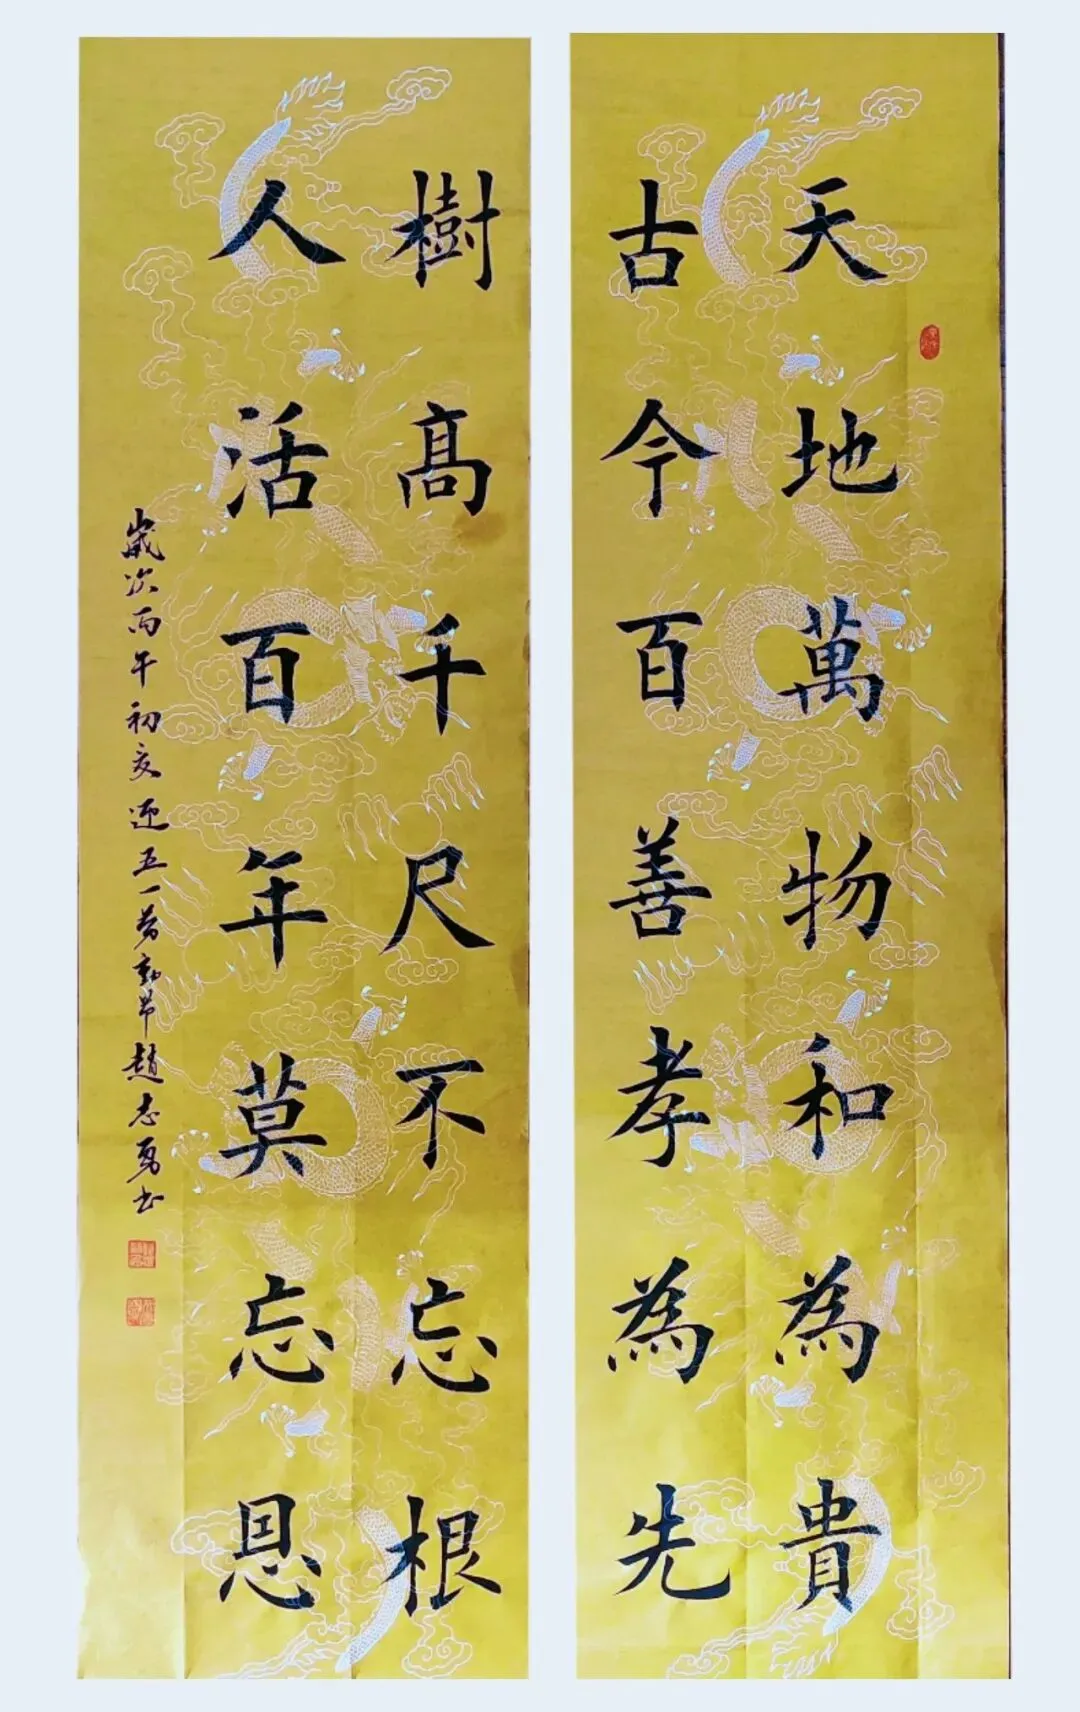 天地萬物和為貴
古今百善孝為先
樹高千尺不忘根
人活百年莫忘恩
歲次丙午初夏迎五一勞動節趙志勇书